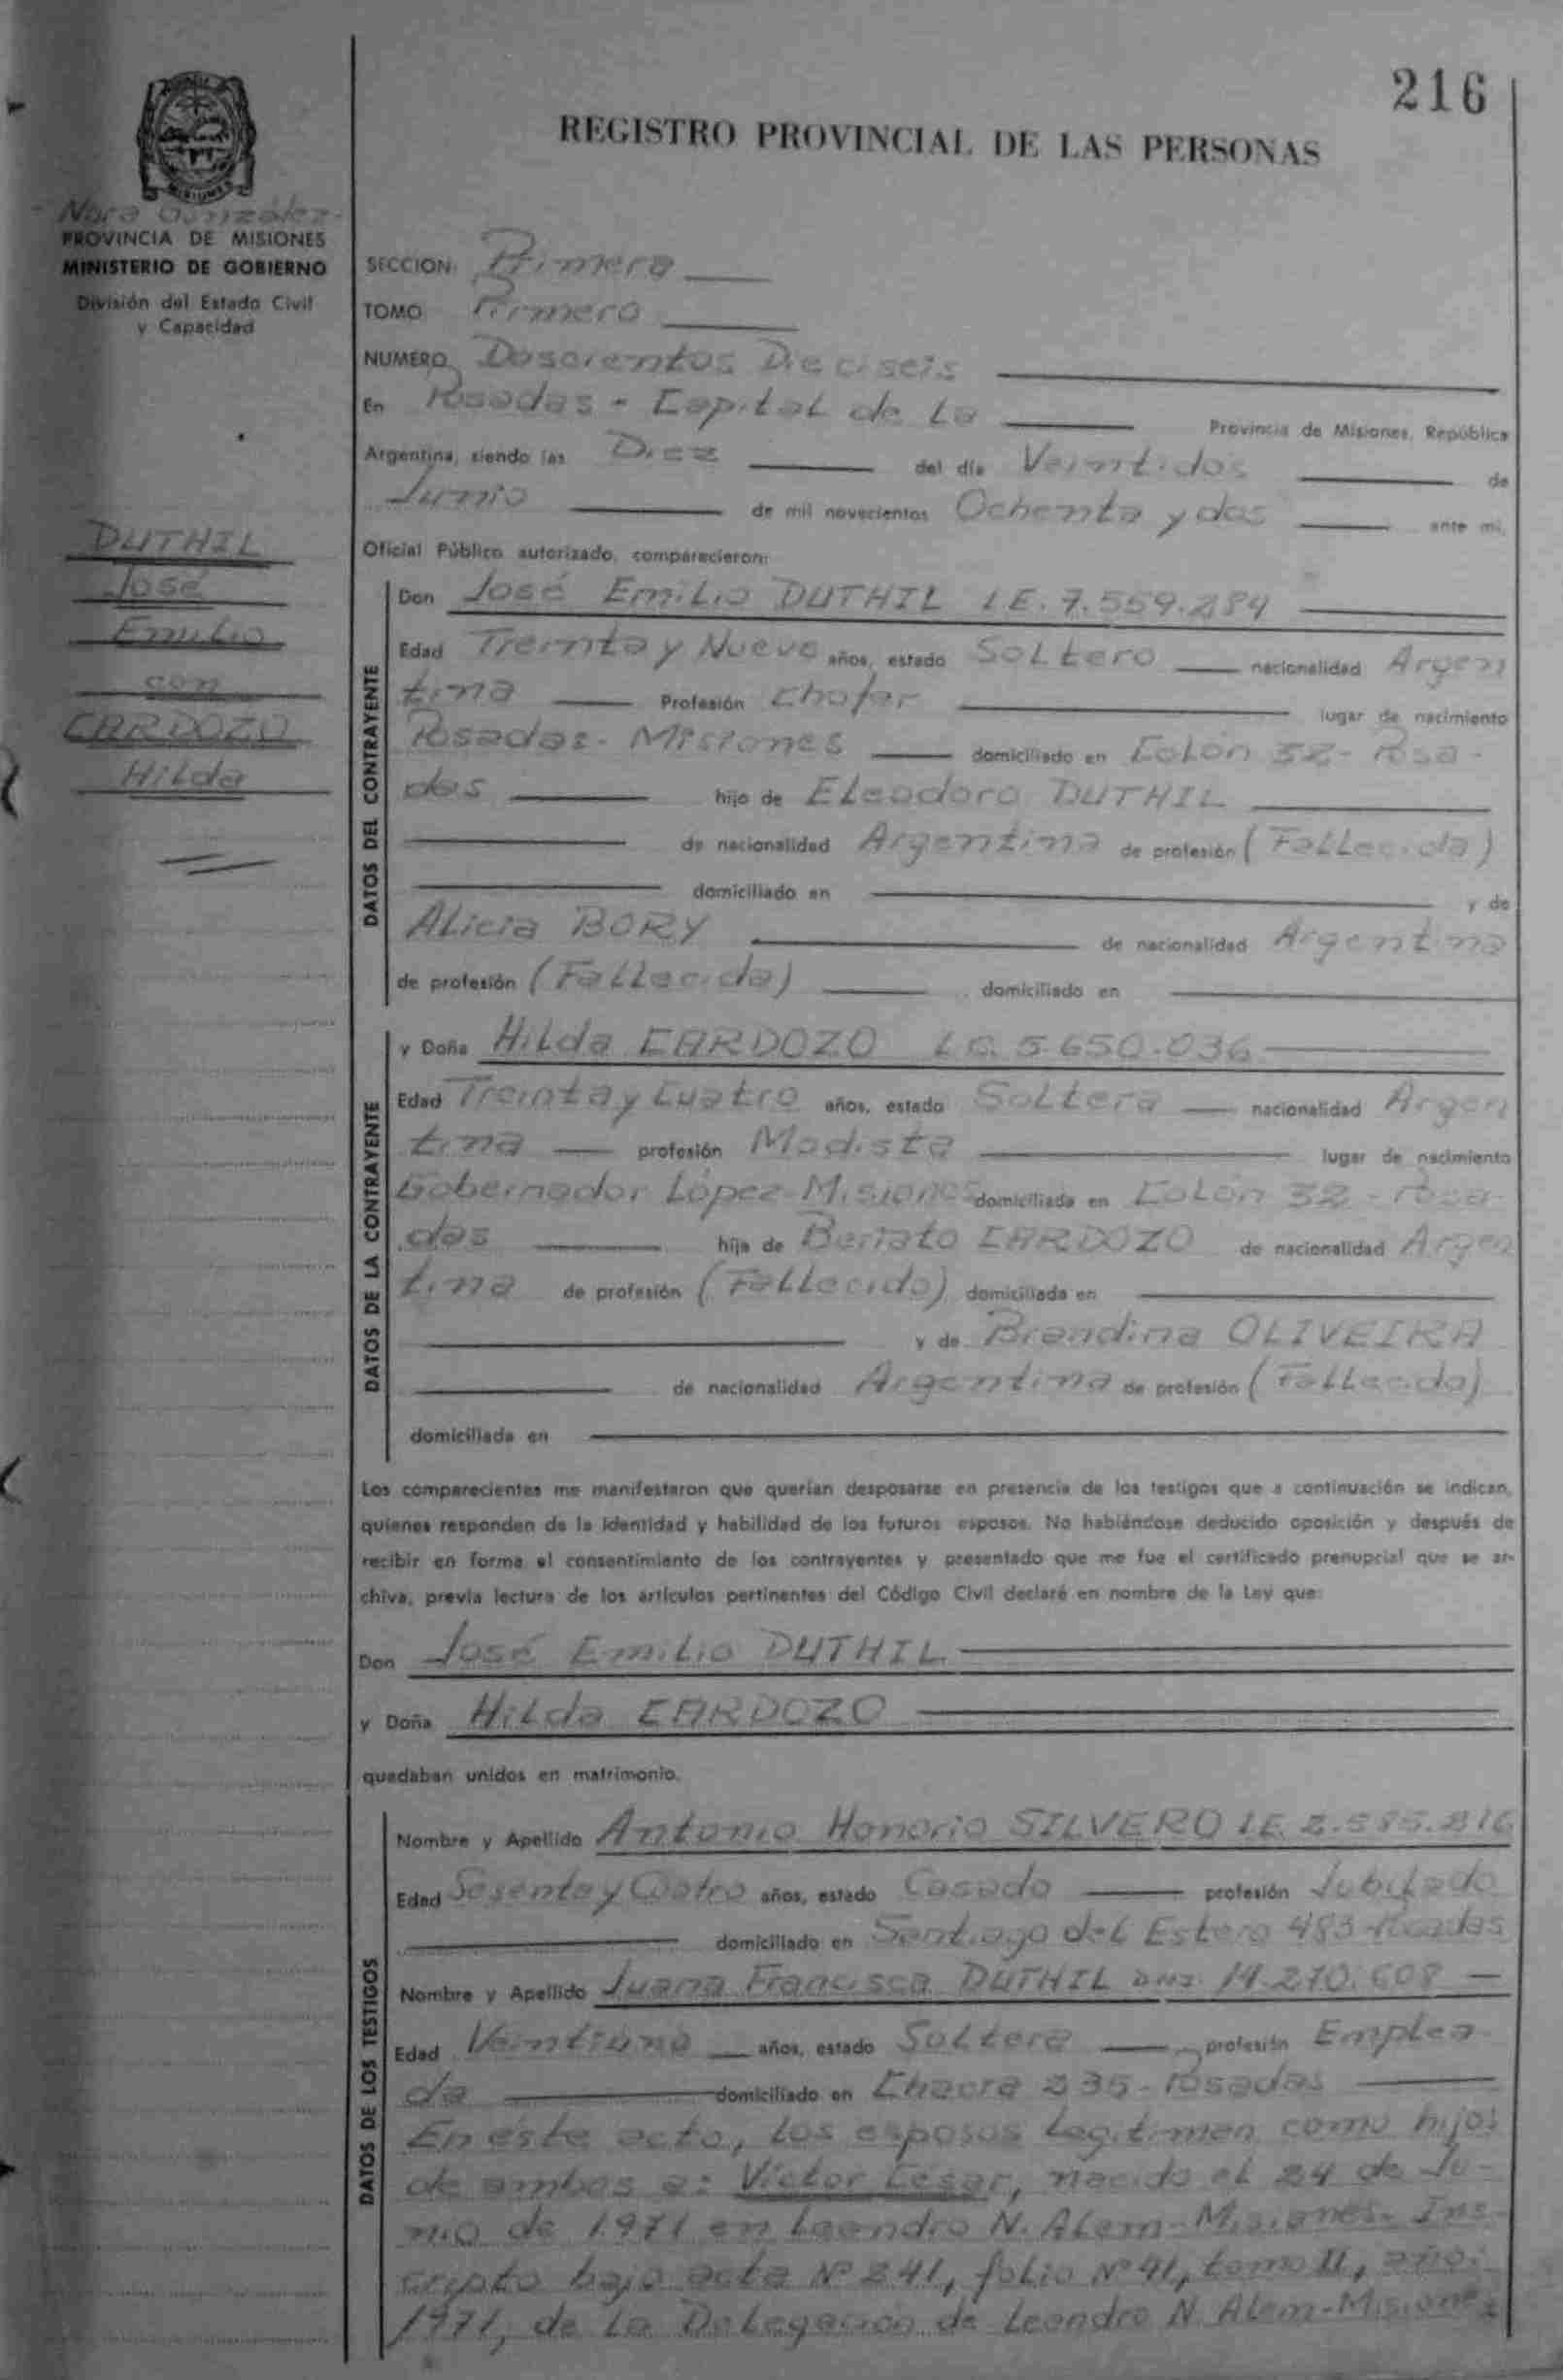 216
REGISTRO PROVINCIAL DE LAS PERSONAS
MISIONES
Nora González
PROVINCIA DE MISIONES
MINISTERIO DE GOBIERNO
División del Estado Civil
y Capacidad
DUTHIL
José
Emilio
con
CARDOZO
Hilda
SECCION: Primera
TOMO Primero
NUMERO Doscientos Dieciseis
En Posadas - Capital de La Provincia de Misiones, República
Argentina, siendo las Diez del día Veintidos de
Junio de mil novecientos Ochenta y dos ante mi,
Oficial Público autorizado, comparecieron:
DATOS DEL CONTRAYENTE
Don José Emilio DUTHIL L.E. 7.559.284
Edad Treinta y Nueve años, estado Soltero nacionalidad Argen
tina Profesión Chofer lugar de nacimiento
Posadas - Misiones domiciliado en Colón 32 - Posa-
das hijo de Eleodoro DUTHIL
de nacionalidad Argentina de profesión (Fallecido)
domiciliado en y de
Alicia BORY de nacionalidad Argentina
de profesión (Fallecida) domiciliado en
DATOS DE LA CONTRAYENTE
y Doña Hilda CARDOZO L.C. 5.650.036
Edad Treinta y Cuatro años, estado Soltera nacionalidad Argen
tina profesión Modista lugar de nacimiento
Gobernador López-Misiones domiciliada en Colón 32 - Posa-
das hija de CARDOZO de nacionalidad Argen
tina de profesión (Fallecido) domiciliada en
y de Brandina OLIVEIRA
de nacionalidad Argentina de profesión (Fallecida)
domiciliada en
Los comparecientes me manifestaron que querían desposarse en presencia de los testigos que a continuación se indican,
quienes responden de la identidad y habilidad de los futuros esposos. No habiéndose deducido oposición y después de
recibir en forma el consentimiento de los contrayentes y presentado que me fue el certificado prenupcial que se ar-
chiva, previa lectura de los artículos pertinentes del Código Civil declaré en nombre de la Ley que:
Don José Emilio DUTHIL
y Doña Hilda CARDOZO
quedaban unidos en matrimonio.
DATOS DE LOS TESTIGOS
Nombre y Apellido Antonio Honorio SILVERO L.E. 2.585.816
Edad Sesenta y Cuatro años, estado Casado profesión Jubilado
domiciliado en Santiago del Estero 483 - Posadas
Nombre y Apellido Juana Francisca DUTHIL DNI. 14.270.608
Edad Veintiuno años, estado Soltera profesión Emplea-
da domiciliado en Chacra 235 - Posadas
En éste acto, los esposos legitiman como hijos
de ambos a: Víctor César, nacido el 24 de Ju-
nio de 1.971 en Leandro N. Alem - Misiones. Ins-
cripto bajo acta Nº 241, folio Nº 41, tomo II, año:
1971, de la Delegación de Leandro N. Alem - Misiones